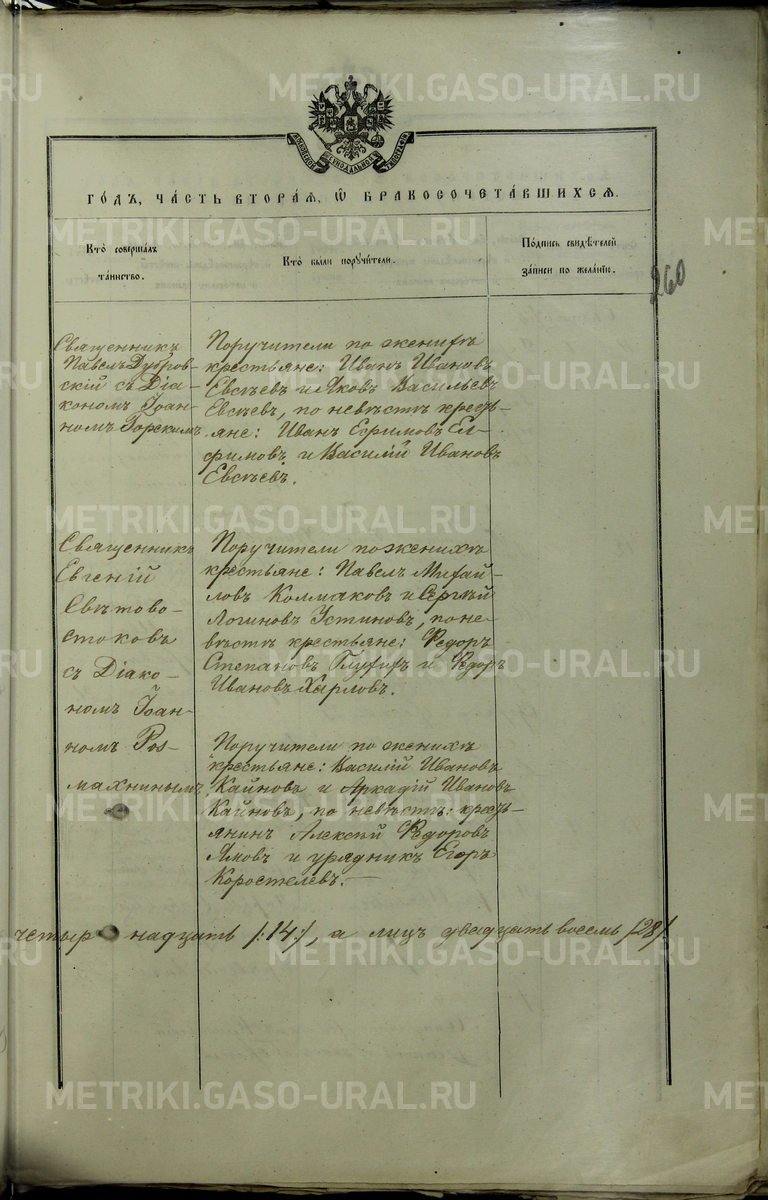 МОСКОВСКОЙ СѴНОДАЛЬНОЙ ТИПОГРАФІИ
ГО́ДЪ, ЧА́СТЬ ВТОРА́Я, Ѽ БРАКОСОЧЕТА́ВШИХСѦ.
Кто̀ соверша́лъ
та́инство.
Кто̀ были̑ порꙋчи́тели.
По́дпись свидѣ́телей
за́писи по жела́нїю.
260
Священникъ
Павелъ Дубров-
скій съ Діа-
кономъ Іоан-
номъ Горскимъ
Поручители по женихѣ
крестьяне: Иванъ Ивановъ
Евсѣевъ и Яковъ Васильевъ
Евсѣевъ, по невѣстѣ кресть-
яне: Иванъ Ефимовъ Ел-
фимовъ и Василій Ивановъ
Евсѣевъ.
Священникъ
Евгеній
Свѣтово-
стоковъ
съ Діако-
номъ Іоан-
номъ Роз-
махнинымъ
Поручители по женихѣ
крестьяне: Павелъ Михай-
ловъ Колмаковъ и Сергѣй
Логиновъ Устиновъ, по не-
вѣстѣ крестьяне: Ѳедоръ
Степановъ и Ѳедоръ
Ивановъ Харловъ.
Поручители по женихѣ
крестьяне: Василій Ивановъ
Кайновъ и Аркадій Ивановъ
Кайновъ, по невѣстѣ: кресть-
янинъ Алексѣй Ѳедоровъ
Ямовъ и урядникъ Егоръ
Коростелевъ.
четыр надцать /:14:/, а лицъ двадцать восемь /28/
METRIKI.GASO-URAL.RU